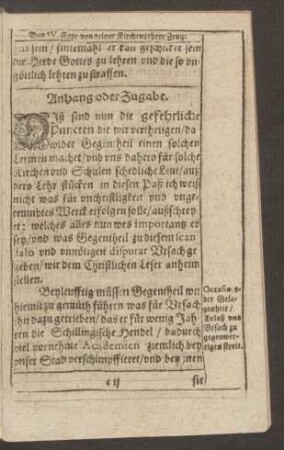 Das IV. Cape. von reiner Kirchenlehre Zeug:
sein / sintemahl er kan geschickt sein
die Herde Gottes zu lehren vnd die so vn-
göttlich lehren zu straffen.
Anhang oder Zugabe.
Diß sind nun die gefehrliche
Puncten die wir vertheitigen / da
wider Gegentheil einen solchen
Lermen machet / vnd vns dahero für solche
Kirchen vnd Schulen schedliche Leut / auß
dero Lehr stücken in diesen Paß ich weiß
nicht was für vnchristligkeit vnd vnge-
reumbtes Werck erfolgen solle / außschrey
et; welches alles nun wes importantz es
sey / vnd was Gegentheil zu diesem scan
dalo vnd vnnötigen disputat Vrsach ge
geben / wir dem Christlichen Leser anheim
stellen.
Beyleufftig müssen Gegentheil wir
hiemit zu gemüth führen was für Vrsach
ihn dazu getrieben / das er für wenig Jah
ren die Schillingische Hendel / dadurch
viel vornehme Academien ziemlich bey
vnser Stad verschimpffieret / vnd bey jnen
Occasio, o-
der Gele-
genheit /
Anlaß vnd
Vrsach zu
gegenwer-
tigen streit.
c ij
sie